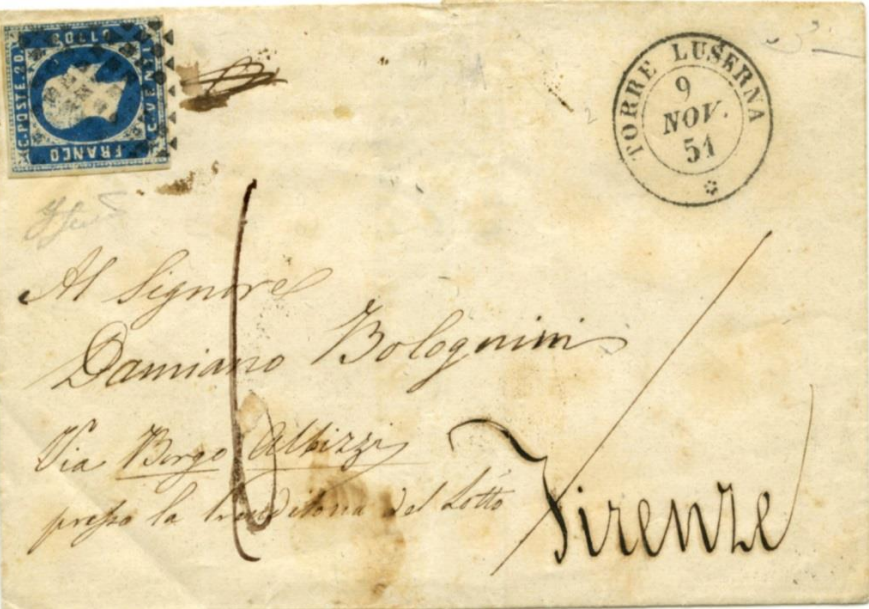 C. POSTE. 20.
C. VENTI
FRANCO
TORRE LUSERNA
9
NOV.
51
Al Signore
Damiano Bolognini
Via Borgo Albizzi
presso la del Lotto
6
Firenze